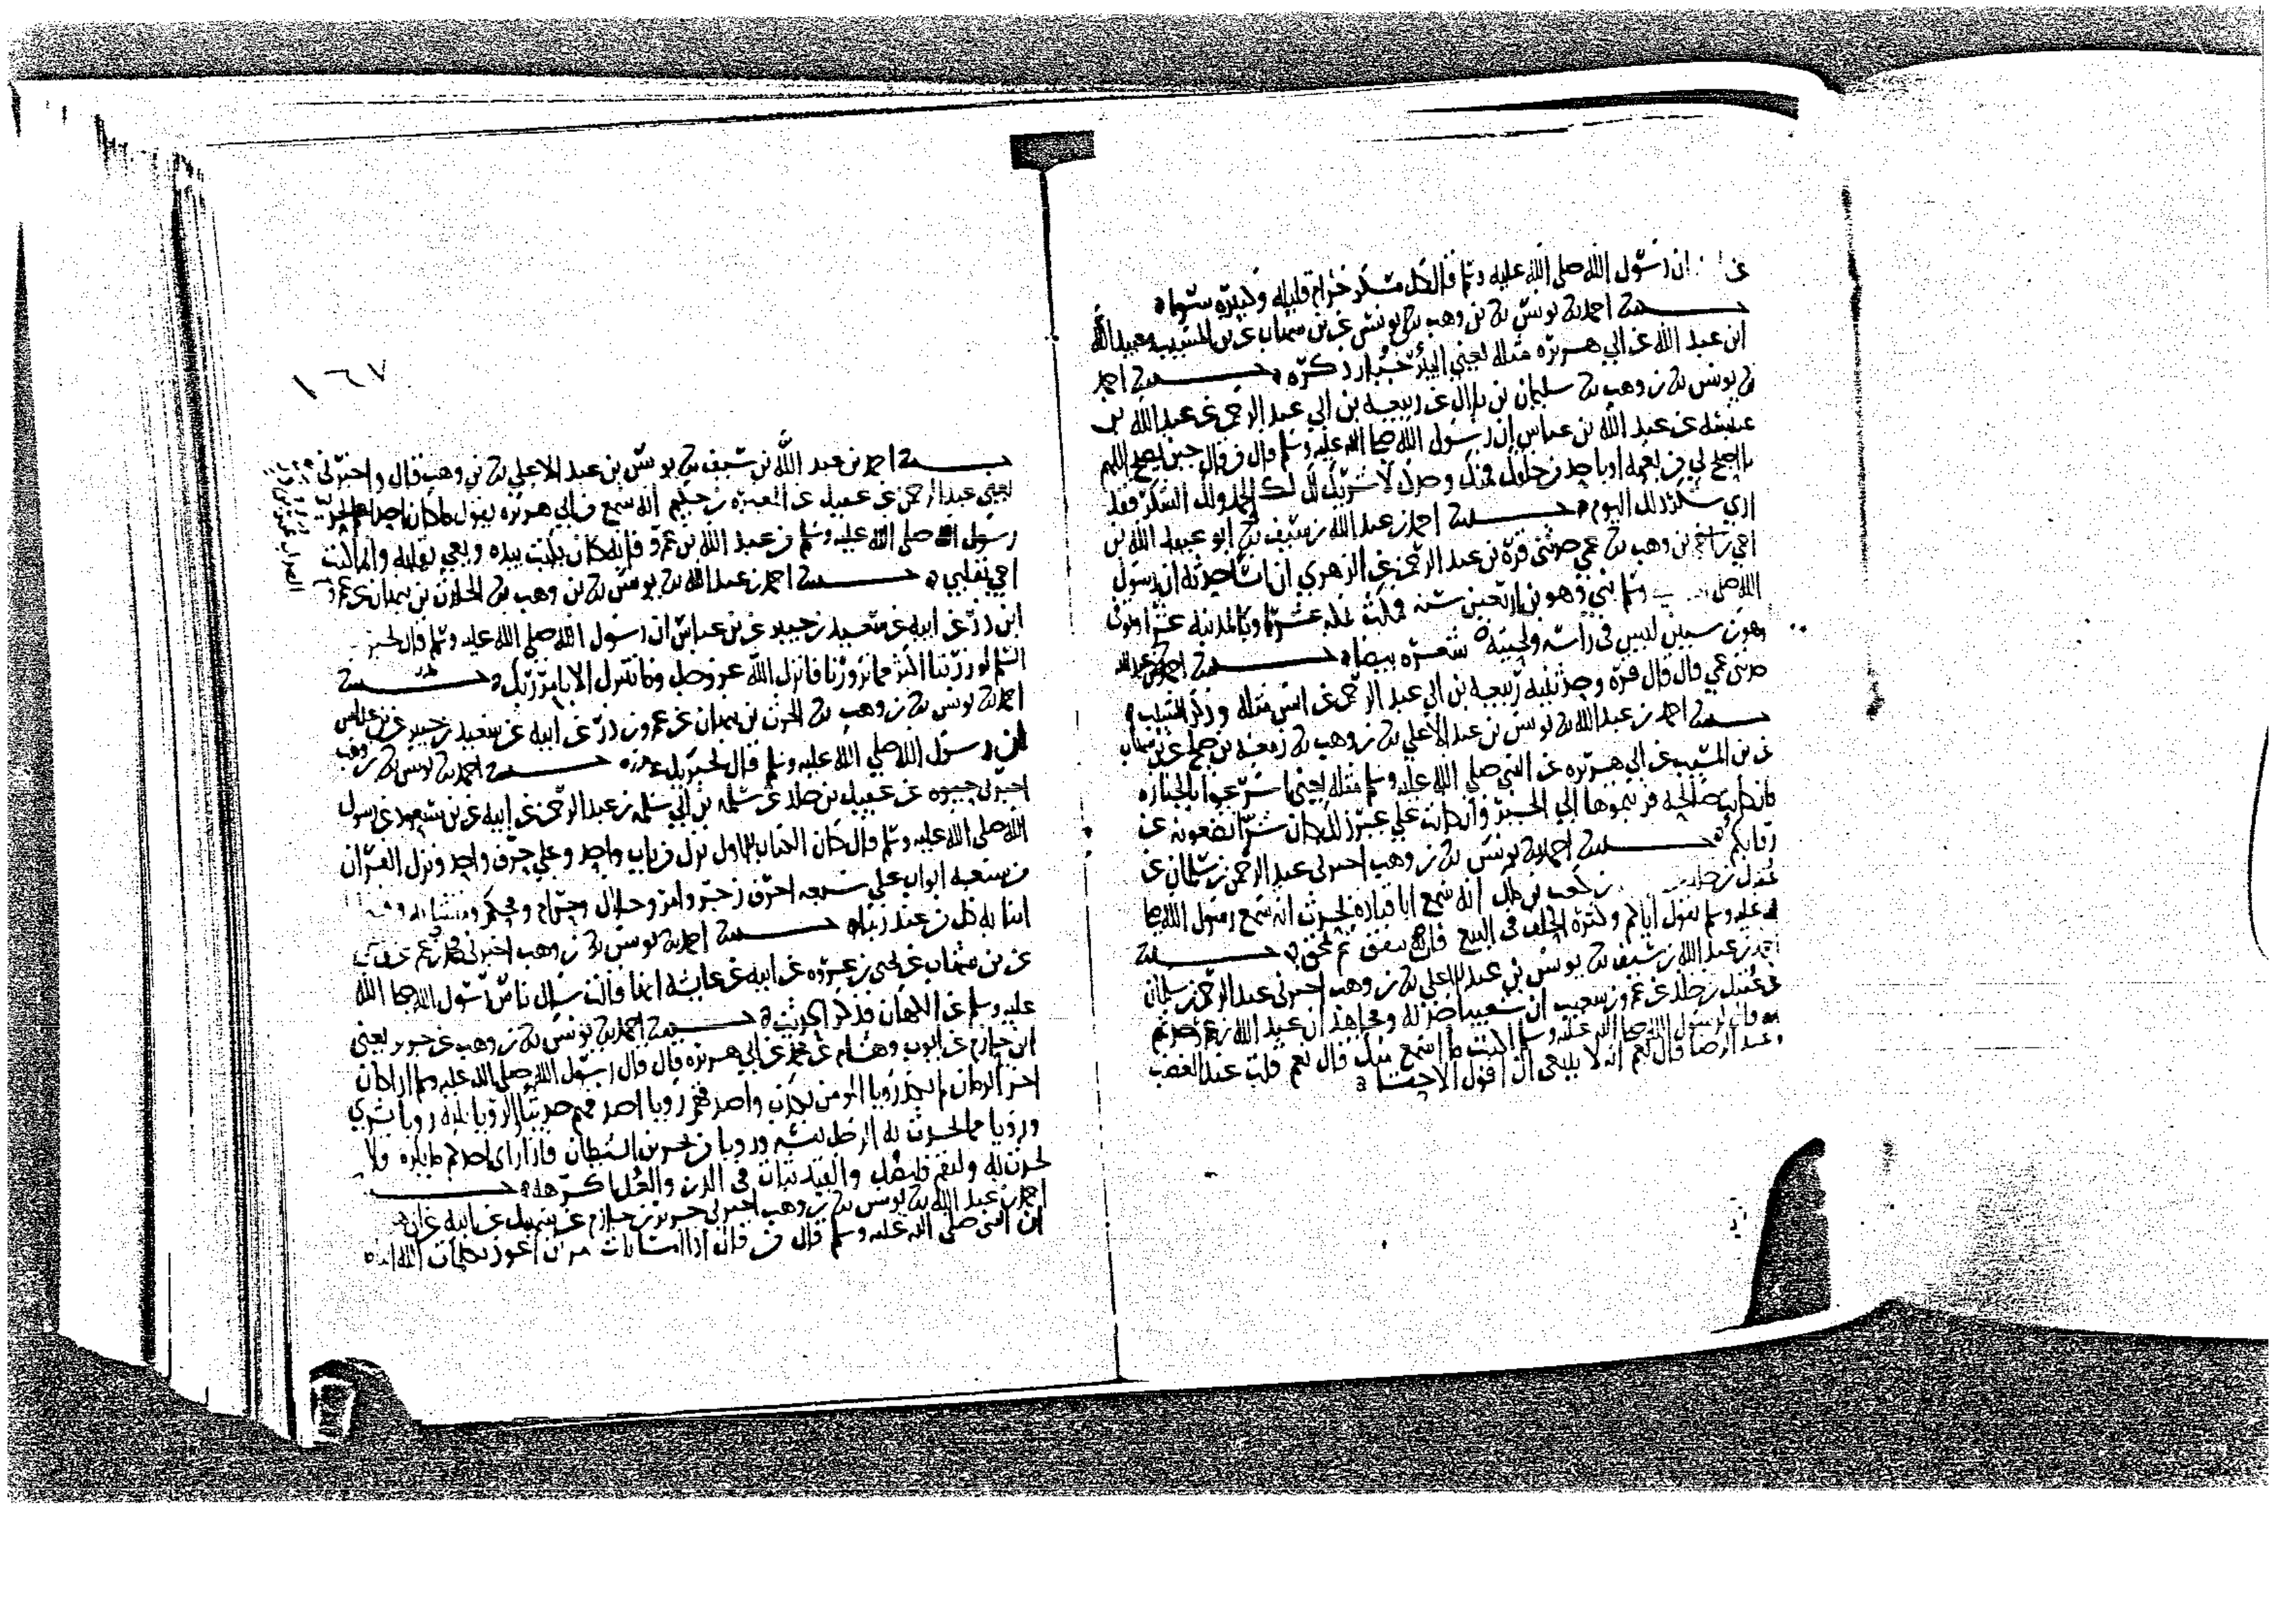 ان رسول الله صلى الله عليه وسلم قال كل مسكر حرام قليله وكثيره سواء
حدثنا احمد نا يونس نا بن وهب نا يونس عن بن شهاب عن بن المسيب وعبيد الله
ابن عبد الله عن ابي هريرة مثله يعني البئر جبار ذكره حدثنا احمد
نا يونس نا بن وهب نا سليمان بن بلال عن ربيعة بن ابي عبد الرحمن عن عبد الله بن
عنبسة عن عبد الله بن عباس ان رسول الله صلى الله عليه وسلم قال من قال حين يصبح اللهم
ما اصبح بي من نعمة او باحد من خلقك فمنك وحدك لا شريك لك لك الحمد ولك الشكر فقد
ادى شكر ذلك اليوم حدثنا احمد بن عبد الله بن سيف نا ابو عبيد الله بن
اخي بن وهب نا عمي حدثني قرة بن عبد الرحمن عن الزهري ان انسا حدثه ان رسول
الله صلى وسلم نبئ وهو بن اربعين سنة فمكث بمكة عشرا وبالمدينة عشرا وتوفى
وهو بن ستين ليس في راسه ولحيته شعرة بيضاء حدثنا احمد نا
حدثني عمي قال قال قرة وحدثنيه ربيعة بن ابي عبد الرحمن عن انس مثله وذكر الشيب
حدثنا احمد بن عبد الله نا يونس بن عبد الاعلى نا بن وهب نا زمعة بن صالح عن بن شهاب
عن بن المسيب عن ابي هريرة عن النبي صلى الله عليه وسلم مثله يعني اسرعوا بالجنازة
فان كانت صالحة قربتموها الى الخير وان كانت على غير ذلك كان شرا تضعونه عن
رقابكم حدثنا احمد نا يونس نا بن وهب اخبرني عبد الرحمن بن سلمان عن
عقيل بن خالد بن كعب بن مالك انه سمع ابا قتادة يحدث انه سمع رسول الله صلى
الله عليه وسلم يقول اياكم وكثرة الحلف في البيع فانه ينفق ثم يمحق حدثنا
احمد بن عبد الله بن سيف نا يونس بن عبد الاعلى نا بن وهب اخبرني عبد الرحمن بن سلمان
عن عقيل بن خالد عن عمرو بن شعيب ان شعيبا حدثه ومجاهد ان عبد الله بن عمرو حدثهم
انه قال لرسول الله صلى الله عليه وسلم اكتب ما اسمع منك قال نعم قلت عند الغضب
وعند الرضا قال نعم انه لا ينبغي ان اقول الا حقا
١٦٧
حدثنا احمد بن عبد الله بن سيف نا يونس بن عبد الاعلى نا بن وهب قال واخبرني
يعني عبد الرحمن عن عقيل عن المغيرة بن حكيم انه سمع من ابي هريرة يقول ما كان احد اعلم بحديث
رسول الله صلى الله عليه وسلم من عبد الله بن عمرو فانه كان يكتب بيده ويعي بقلبه وانما كنت
اعي بقلبي حدثنا احمد بن عبد الله نا يونس نا بن وهب نا الحارث بن نبهان عن عمر
ابن ذر عن ابيه عن سعيد بن جبير عن بن عباس ان رسول الله صلى الله عليه وسلم قال لجبريل
لو زرتنا اكثر مما تزورنا فانزل الله عز وجل وما نتنزل الا بامر ربك حدثنا
احمد نا يونس نا بن وهب نا الحرث بن نبهان عن عمرو بن ذر عن ابيه عن سعيد بن جبير عن بن عباس
ان رسول الله صلى الله عليه وسلم قال لجبريل حدثنا احمد نا يونس نا بن وهب
اخبرني حيوة عن عقيل بن خالد عن سلمة بن ابي سلمة بن عبد الرحمن عن ابيه عن بن مسعود عن رسول
الله صلى الله عليه وسلم قال كان الكتاب الاول نزل من باب واحد وعلى حرف واحد ونزل القران
من سبعة ابواب على سبعة احرف زجر وامر وحلال وحرام ومحكم ومتشابه
امنا به كل من عند ربنا حدثنا احمد نا يونس نا بن وهب اخبرني
عن بن شهاب عن يحيى بن عروة عن ابيه عن عائشة انها قالت سال ناس رسول الله صلى الله
عليه وسلم عن الكهان فذكر الحديث حدثنا احمد نا يونس نا بن وهب عن جرير يعني
ابن حازم عن ايوب وهشام عن محمد عن ابي هريرة قال قال رسول الله صلى الله عليه وسلم اذا كان
اخر الزمان لم تكد رؤيا المؤمن تكذب واصدقهم رؤيا اصدقهم حديثا الرؤيا ثلاثة رؤيا بشرى
ورؤيا مما يحدث به الرجل نفسه ورؤيا من تحزين الشيطان فاذا راى احدكم ما يكره فلا
يحدث به وليقم فليصل والقيد ثبات في الدين والغل اكرهه
احمد بن عبد الله نا يونس نا بن وهب اخبرني جرير بن حازم عن سهيل عن ابيه عن
ان النبي صلى الله عليه وسلم قال من قال اذا امسى ثلاث مرات اعوذ بكلمات الله
الصواب